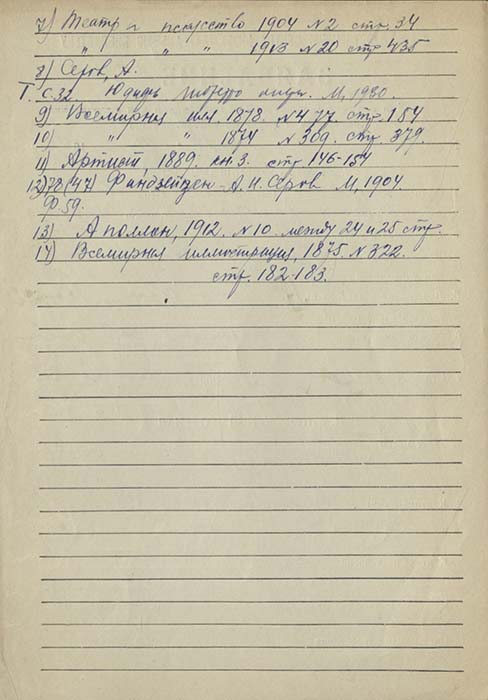 7) Театр и искусство 1904 № 2 стр. 34
" " " 1913 № 20 стр 435
8) Серов, А.
Т. С.32 Юдифь М, 1930.
9) Всемирная илл 1878. № 477. стр. 154
10) " " 1874 № 309. стр. 379.
11) Артист, 1889. кн. 3. стр 146-154
12) 78(47) Финдейзен - А.Н. Серов М, 1904.
Ф 59.
13) Аполлон, 1912. № 10 между 24 и 25 стр.
14) Всемирная иллюстрация, 1875. № 322.
стр. 182-183.